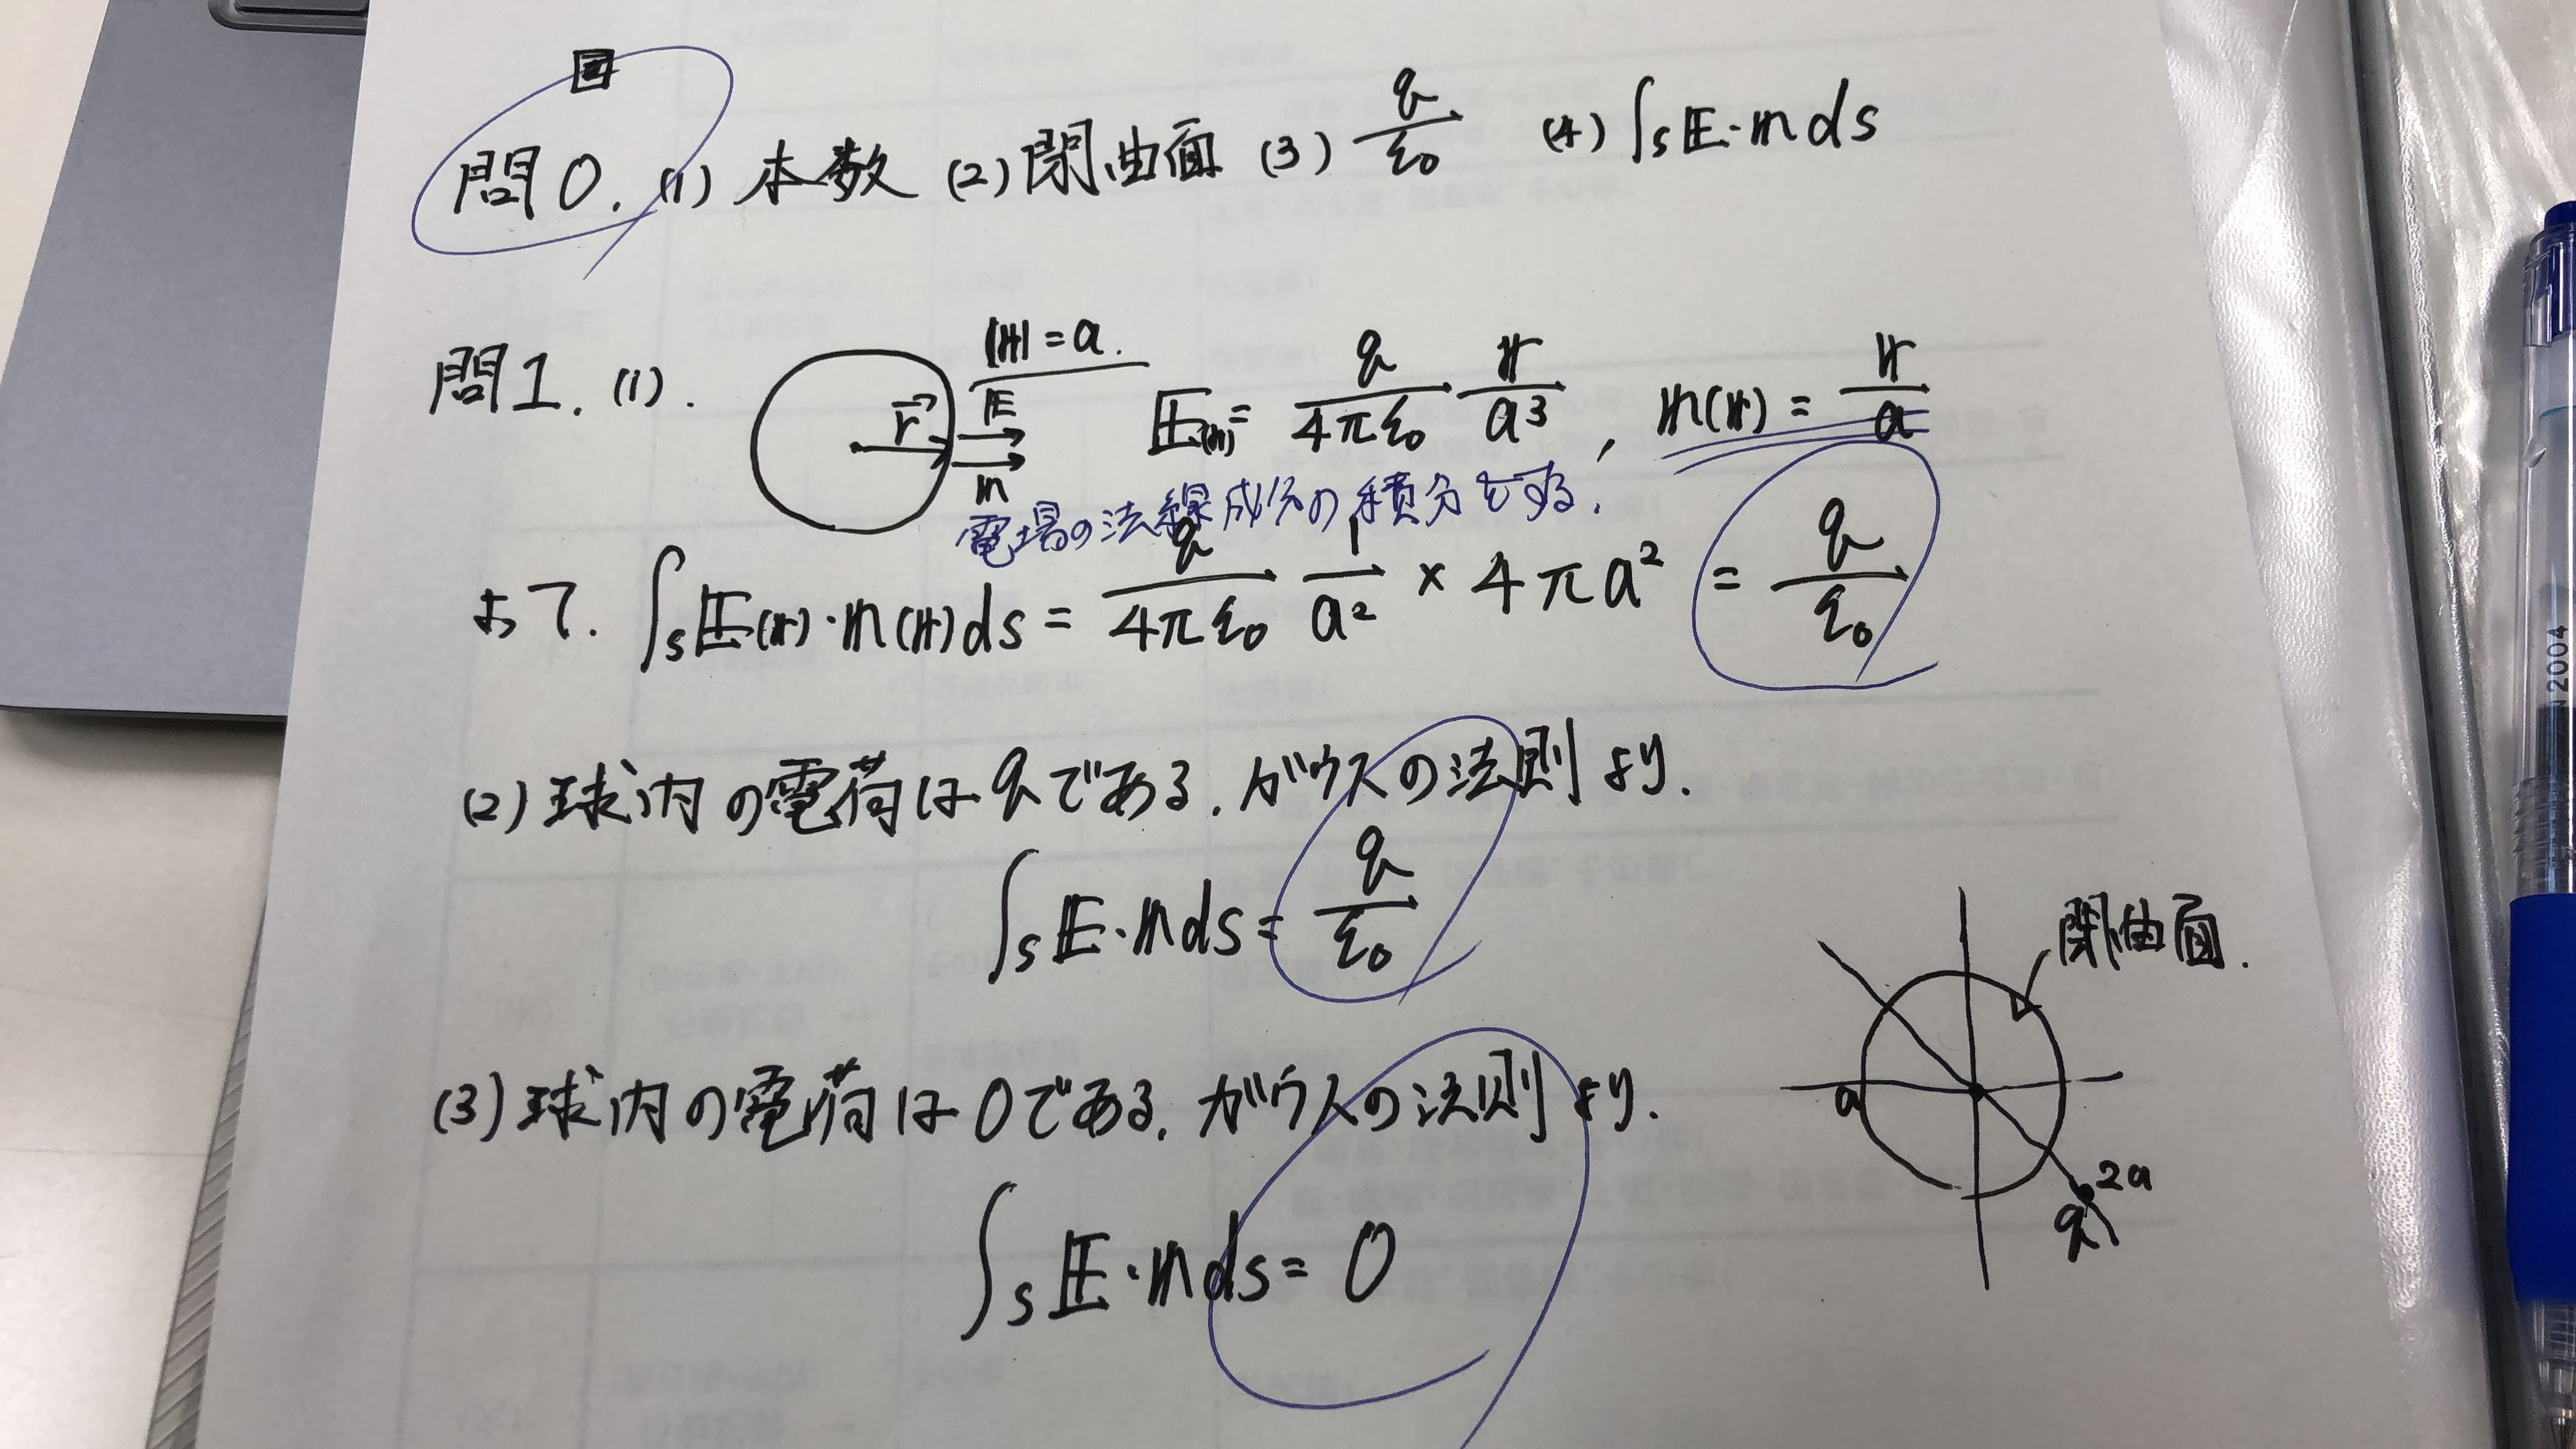 問0. (1) 本数 (2) 閉曲面 (3) q/ε0 (4) ∫s E・n ds
問1. (1).
|r| = a.
r→ E n
E(r) = q/4πε0 r/a³ , n(r) = r/a
電場の法線成分の積分をする.
よって. ∫s E(r)・n(r) ds = q/4πε0 1/a² × 4πa² = q/ε0
(2) 球内の電荷は q である. ガウスの法則より.
∫s E・n ds = q/ε0
閉曲面.
(3) 球内の電荷は 0 である. ガウスの法則より.
a
2a
q
∫s E・n ds = 0
2004